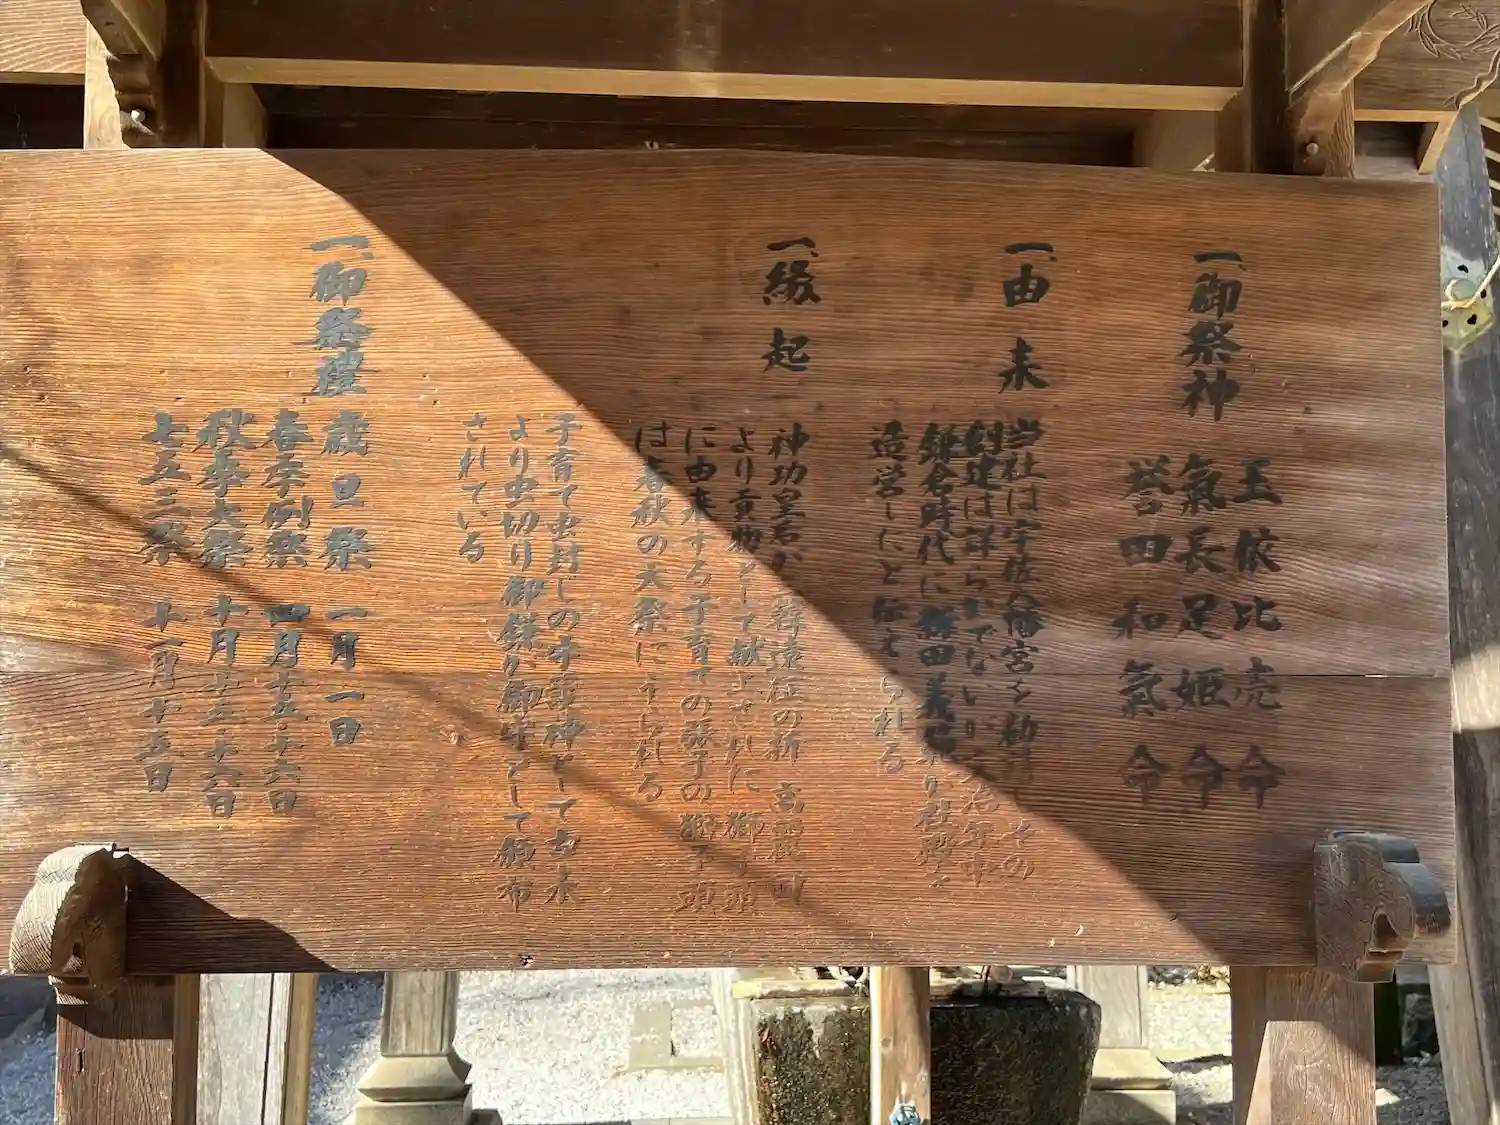 一、御祭神
玉依比売命
氣長足姫命
誉田和氣命
一、由来
当社は宇佐八幡宮を勧 その
創建は詳らかでないが 治年中
鎌倉時代に 田義 が社殿を
造営したと伝えられる
一、縁起
神功皇后が三韓遠征の折 高麗
より貢物として献上された獅子頭
に由来する子育ての張子の獅子頭
は春秋の大祭に うられる
子育て虫封じの守護神として 木
より虫切り御鎌が御守として頒布
されている
一、御祭禮
歳旦祭 一月一日
春季例祭 四月十五・十六日
秋季大祭 十月十五・十六日
七五三祭 十一月十五日